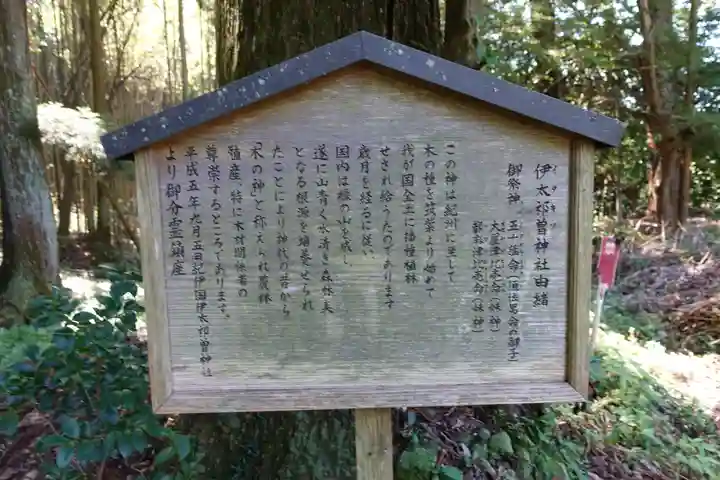 伊太祁曽神社由緒
イタキソ
御祭神 五十猛命(素佐男命の御子)
大屋津比売命(妹神)
都麻津比売命(妹神)
この神は紀州に坐して
木の種を筑紫より始めて
我が国全土に播種植林
せされ給うたのであります
歳月を経るに従い、
国内は緑の山を成し
遂に山青く水清き森林美
となる根源を培養せられ
たことにより神代の昔から
「木の神」と称えられ農林
殖産、特に木材関係者の
尊崇するところであります。
平成五年九月五日紀伊国伊太祁曽神社
より御分霊鎮座